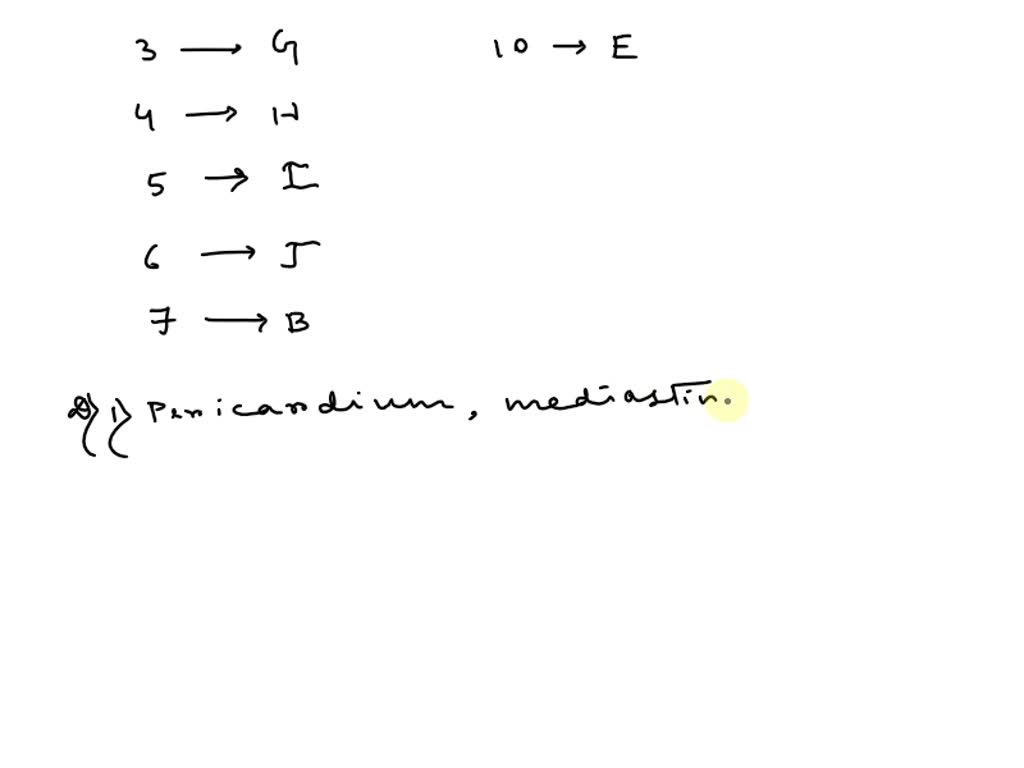 3 → G
10 → E
4 → H
5 → I
6 → J
7 → B
2) 1) Pericardium, mediastin.